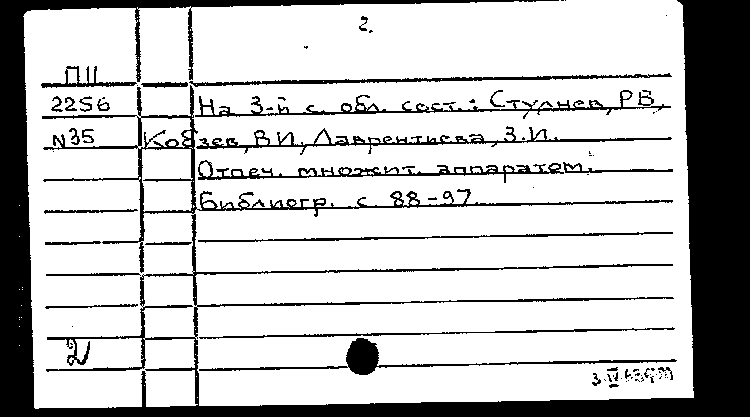 2.
П11
2256 На 3-й с. обл. сост.: Стулнев, Р.В,
N35 Кобзев, В.И., Лаврентиева, З.И.
Отпеч. множит. аппаратом.
Библиогр. с 88-97.
2